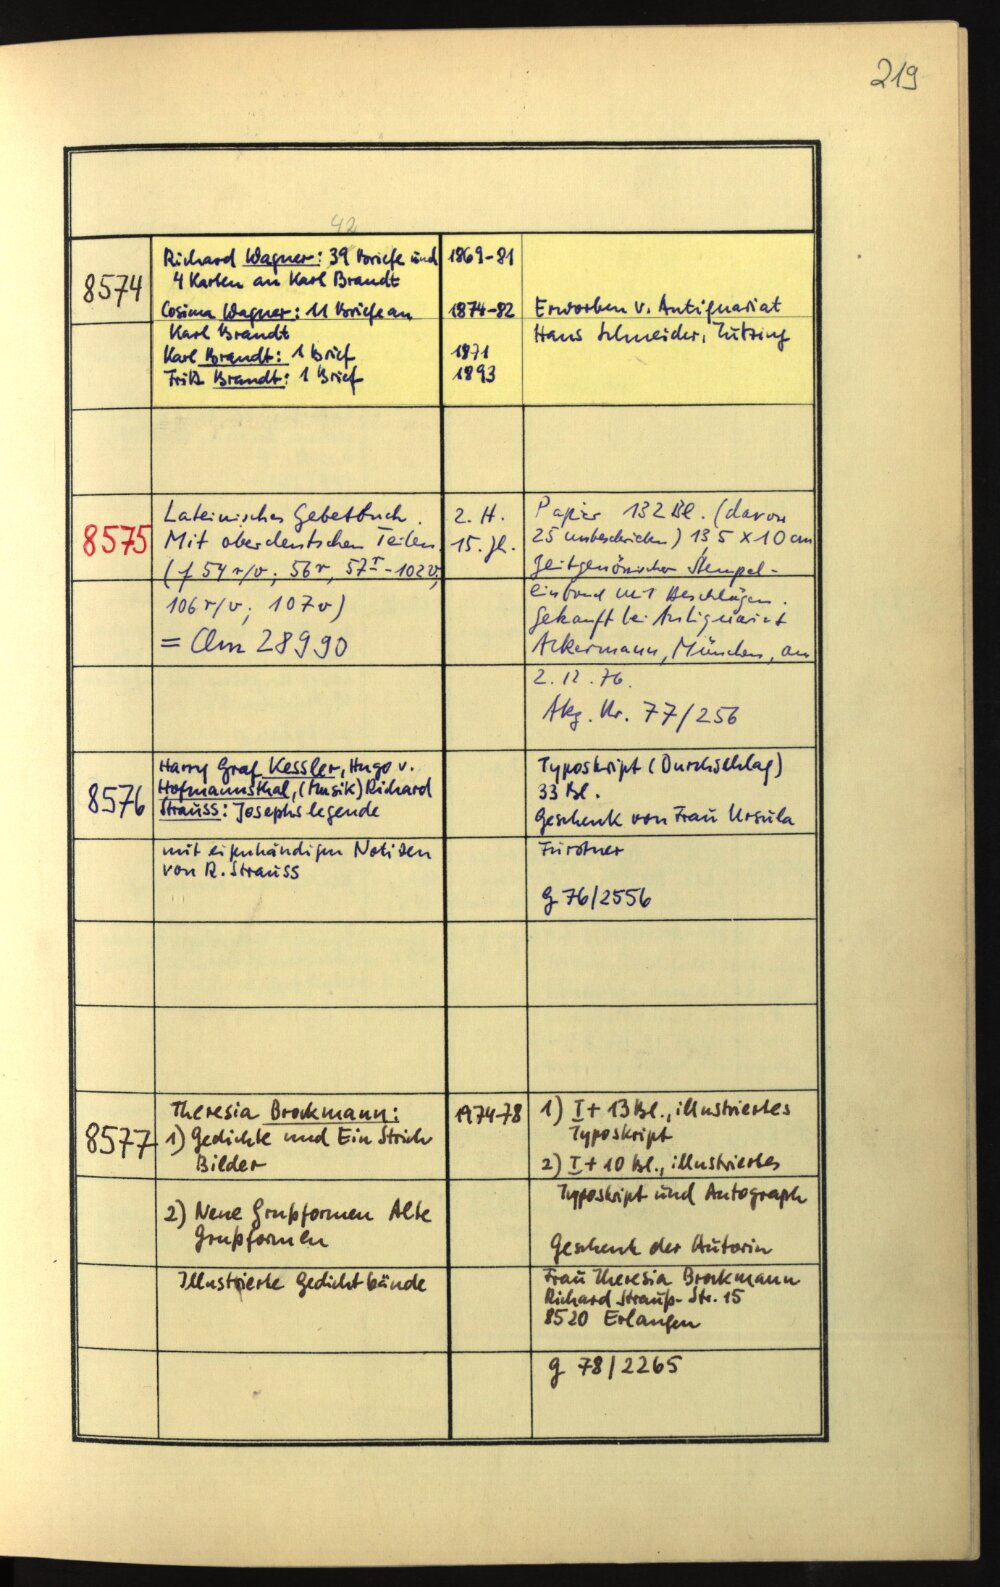 219
42
8574
Richard Wagner: 39 Briefe und
4 Karten an Karl Brandt
1869-81
Cosima Wagner: 11 Briefe an
Karl Brandt
1874-82
Karl Brandt: 1 Brief
1871
Fritz Brandt: 1 Brief
1893
Erworben v. Antiquariat
Hans Schneider, Tutzing
8575
Lateinisches Gebetbuch.
Mit oberdeutschen Teilen
(f 54 r/v; 56r, 57r-102v,
106 r/v; 107v)
= Clm 28990
2. H.
15. Jh.
Papier 132 Bl. (davon
25 unbeschrieben) 13,5 x 10 cm
Zeitgenössischer Stempel-
einband mit Beschlägen.
Gekauft bei Antiquariat
Ackermann, München, am
2.12.76.
Akz. Nr. 77/256
8576
Harry Graf Kessler, Hugo v.
Hofmannsthal, (Musik) Richard
Strauss: Josephslegende
mit eigenhändigen Notizen
von R. Strauss
Typoskript (Durchschlag)
33 Bl.
Geschenk von Frau Ursula
Fürstner
g 76/2556
8577
Theresia Brockmann:
1) Gedichte und Ein Strich
Bilder
2) Neue Grußformen Alte
Grußformen
Illustrierte Gedichtbände
1974-78
1) I + 13 Bl., illustriertes
Typoskript
2) I + 10 Bl., illustriertes
Typoskript und Autograph
Geschenk der Autorin
Frau Theresia Brockmann
Richard Strauß-Str. 15
8520 Erlangen
g 78/2265